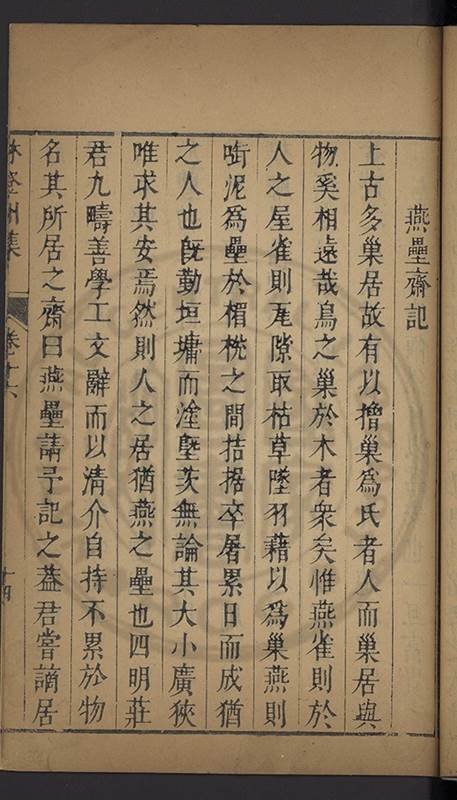 燕壘齋記
上古多巢居故有以櫓巢爲氏者人而巢居與
物奚相遠哉鳥之巢於木者衆矣惟燕雀則於
人之屋雀則瓦隙取枯草墜羽藉以爲巢燕則
啣泥爲壘於楣梲之間拮据卒屠累日而成猶
之人也旣勤垣墉而塗塈茨無論其大小廣狹
唯求其安焉然則人之居猶燕之壘也四明莊
君九疇善學工文辭而以淸介自持不累於物
名其所居之齋曰燕壘請予記之葢君嘗謫居
卷十六